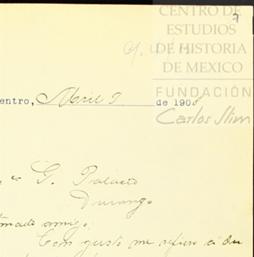 CENTRO DE
ESTUDIOS
DE HISTORIA
DE MEXICO
FUNDACIÓN
Carlos Slim
entro, Abril 9 de 190
G. Palacio
Durango
mado amigo:
Con gusto me refiero á su